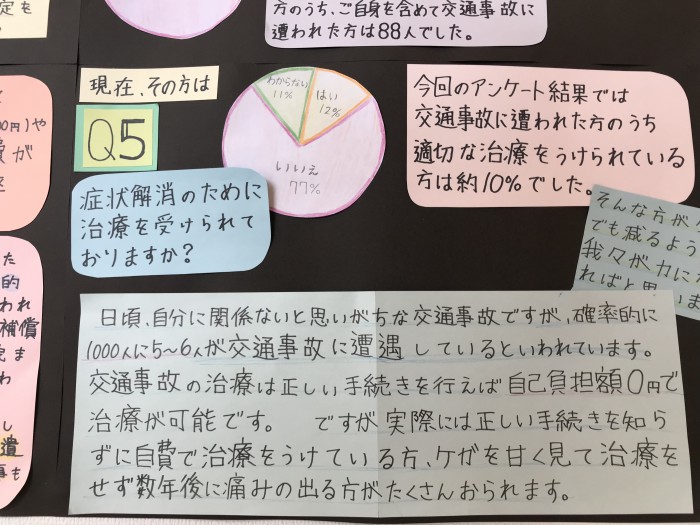 定も
方のうち、ご自身を含めて交通事故に
遭われた方は88人でした。
現在、その方は
Q5
症状解消のために
治療を受けられて
おりますか?
わからない
11%
はい
12%
いいえ
77%
今回のアンケート結果では
交通事故に遭われた方のうち
適切な治療をうけられている
方は約10%でした。
そんな方が
でも減るよう
我々が力にな
ればと思いま
00円)や
費が
た
的
われ
補償
ま
わ
し
遺
も
日頃、自分に関係ないと思いがちな交通事故ですが、確率的に
1000人に5〜6人が交通事故に遭遇しているといわれています。
交通事故の治療は正しい手続きを行えば自己負担額0円で
治療が可能です。 ですが実際には正しい手続きを知ら
ずに自費で治療をうけている方、ケガを甘く見て治療を
せず数年後に痛みの出る方がたくさんおられます。